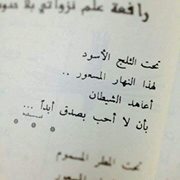 رافعة علم نزواتي بلا حدود
تحت الثلج الأسود
لهذا النهار المسعور ..
أعاهد الشيطان
بأن لا أحب بصدق أبداً ...
تحت المطر المسموم